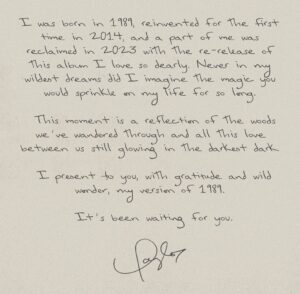 I was born in 1989, reinvented for the first
time in 2014, and a part of me was
reclaimed in 2023 with the re-release of
this album I love so dearly. Never in my
wildest dreams did I imagine the magic you
would sprinkle on my life for so long.
This moment is a reflection of the woods
we've wandered through and all this love
between us still glowing in the darkest dark.
I present to you, with gratitude and wild
wonder, my version of 1989.
It's been waiting for you.
Taylor